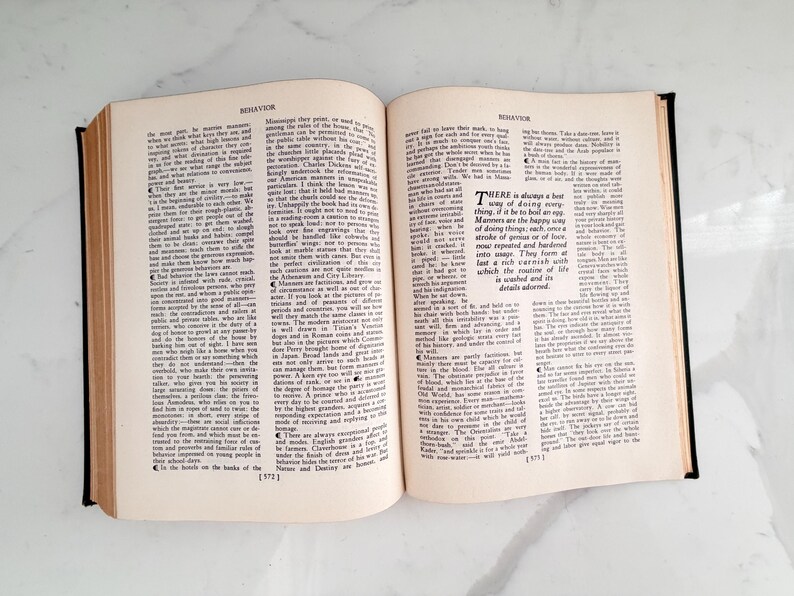 BEHAVIOR
the most part, he marries manners:
when we think what keys they are, and
to what secrets; what high lessons and
inspiring tokens of character they con-
vey, and what divination is required
in us for the reading of this fine tele-
graph,—we see what range the subject
has, and what relations to convenience,
power and beauty.
¶ Their first service is very low,—
when they are the minor morals: but
't is the beginning of civility,—to make
us, I mean, endurable to each other. We
prize them for their rough-plastic, ab-
stergent force; to get people out of the
quadruped state; to get them washed,
clothed and set up on end; to slough
their animal husks and habits; compel
them to be clean; overawe their spite
and meanness; teach them to stifle the
base and choose the generous expression,
and make them know how much hap-
pier the generous behaviors are.
¶ Bad behavior the laws cannot reach.
Society is infested with rude, cynical,
restless and frivolous persons, who prey
upon the rest, and whom a public opin-
ion concentrated into good manners—
forms accepted by the sense of all—can
reach: the contradictors and railers at
public and private tables, who are like
terriers, who conceive it the duty of a
dog of honor to growl at any passer-by
and do the honors of the house by
barking him out of sight. I have seen
men who neigh like a horse when you
contradict them or say something which
they do not understand:—then the
overbold, who make their own invita-
tion to your hearth; the persevering
talker, who gives you his society in
large saturating doses; the pitiers of
themselves, a perilous class; the frivo-
lous Asmodeus, who relies on you to
find him in ropes of sand to twist; the
monotones; in short, every stripe of
absurdity;—these are social inflictions
which the magistrate cannot cure or de-
fend you from, and which must be en-
trusted to the restraining force of cus-
tom and proverbs and familiar rules of
behavior impressed on young people in
their school-days.
¶ In the hotels on the banks of the
Mississippi they print, or used to print,
among the rules of the house, that "No
gentleman can be permitted to come to
the public table without his coat;" and
in the same country, in the pews of
the churches little placards plead with
the worshipper against the fury of ex-
pectoration. Charles Dickens self-sacri-
ficingly undertook the reformation of
our American manners in unspeakable
particulars. I think the lesson was not
quite lost; that it held bad manners up,
so that the churls could see the deform-
ity. Unhappily the book had its own de-
formities. It ought not to need to print
in a reading-room a caution to strangers
not to speak loud; nor to persons who
look over fine engravings that they
should be handled like cobwebs and
butterflies' wings; nor to persons who
look at marble statues that they shall
not smite them with canes. But even in
the perfect civilization of this city
such cautions are not quite needless in
the Athenæum and City Library.
¶ Manners are factitious, and grow out
of circumstance as well as out of char-
acter. If you look at the pictures of pa-
tricians and of peasants of different
periods and countries, you will see how
well they match the same classes in our
towns. The modern aristocrat not only
is well drawn in Titian's Venetian
doges and in Roman coins and statues,
but also in the pictures which Commo-
dore Perry brought home of dignitaries
in Japan. Broad lands and great inter-
ests not only arrive to such heads as
can manage them, but form manners of
power. A keen eye too will see nice gra-
dations of rank, or see in the manners
the degree of homage the party is wont
to receive. A prince who is accustomed
every day to be courted and deferred to
by the highest grandees, acquires a cor-
responding expectation and a becoming
mode of receiving and replying to this
homage.
¶ There are always exceptional people
and modes. English grandees affect to
be farmers. Claverhouse is a fop, and
under the finish of dress and levity of
behavior hides the terror of his war. But
Nature and Destiny are honest, and
[ 572 ]
BEHAVIOR
never fail to leave their mark, to hang
out a sign for each and for every qual-
ity. It is much to conquer one's face,
and perhaps the ambitious youth thinks
he has got the whole secret when he has
learned that disengaged manners are
commanding. Don't be deceived by a fa-
cile exterior. Tender men sometimes
have strong wills. We had in Massa-
chusetts an old states-
man who had sat all
his life in courts and
in chairs of state
without overcoming
an extreme irritabil-
ity of face, voice and
bearing; when he
spoke, his voice
would not serve
him; it cracked, it
broke, it wheezed,
it piped; — little
cared he; he knew
that it had got to
pipe, or wheeze, or
screech his argument
and his indignation.
When he sat down,
after speaking, he
seemed in a sort of fit, and held on to
his chair with both hands: but under-
neath all this irritability was a puis-
sant will, firm and advancing, and a
memory in which lay in order and
method like geologic strata every fact
of his history, and under the control of
his will.
¶ Manners are partly factitious, but
mainly there must be capacity for cul-
ture in the blood. Else all culture is
vain. The obstinate prejudice in favor
of blood, which lies at the base of the
feudal and monarchical fabrics of the
Old World, has some reason in com-
mon experience. Every man—mathema-
tician, artist, soldier or merchant—looks
with confidence for some traits and tal-
ents in his own child which he would
not dare to presume in the child of
a stranger. The Orientalists are very
orthodox on this point. "Take a
thorn-bush," said the emir Abdel-
Kader, "and sprinkle it for a whole year
with rose-water;—it will yield noth-
THERE is always a best
way of doing every-
thing, if it be to boil an egg.
Manners are the happy way
of doing things; each, once a
stroke of genius or of love,
now repeated and hardened
into usage. They form at
last a rich varnish with
which the routine of life
is washed and its
details adorned.
ing but thorns. Take a date-tree, leave it
without water, without culture, and it
will always produce dates. Nobility is
the date-tree and the Arab populace is
a bush of thorns."
¶ A main fact in the history of man-
ners is the wonderful expressiveness of
the human body. If it were made of
glass, or of air, and the thoughts were
written on steel tab-
lets within, it could
not publish more
truly its meaning
than now. Wise men
read very sharply all
your private history
in your look and gait
and behavior. The
whole economy of
nature is bent on ex-
pression. The tell-
tale body is all
tongues. Men are like
Geneva watches with
crystal faces which
expose the whole
movement. They
carry the liquor of
life flowing up and
down in these beautiful bottles and an-
nouncing to the curious how it is with
them. The face and eyes reveal what the
spirit is doing, how old it is, what aims it
has. The eyes indicate the antiquity of
the soul, or through how many forms
it has already ascended. It almost vio-
lates the proprieties if we say above the
breath here what the confessing eyes do
not hesitate to utter to every street pas-
senger.
¶ Man cannot fix his eye on the sun,
and so far seems imperfect. In Siberia a
late traveller found men who could see
the satellites of Jupiter with their un-
armed eye. In some respects the animals
excel us. The birds have a longer sight,
beside the advantage by their wings of
a higher observatory. A cow can bid
her calf, by secret signal, probably of
the eye, to run away or to lie down and
hide itself. The jockeys say of certain
horses that "they look over the whole
ground." The out-door life and hunt-
ing and labor give equal vigor to the
[ 573 ]